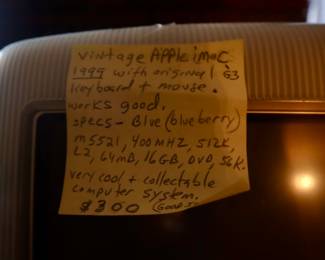 vintage Apple imac
1999 with original G3
keyboard + mouse.
works good.
specs - Blue (blueberry)
m5521, 400mHZ, 512K,
L2, 64mB, 16GB, DVD, 56K.
very cool + collectable
computer system.
$300 (Good